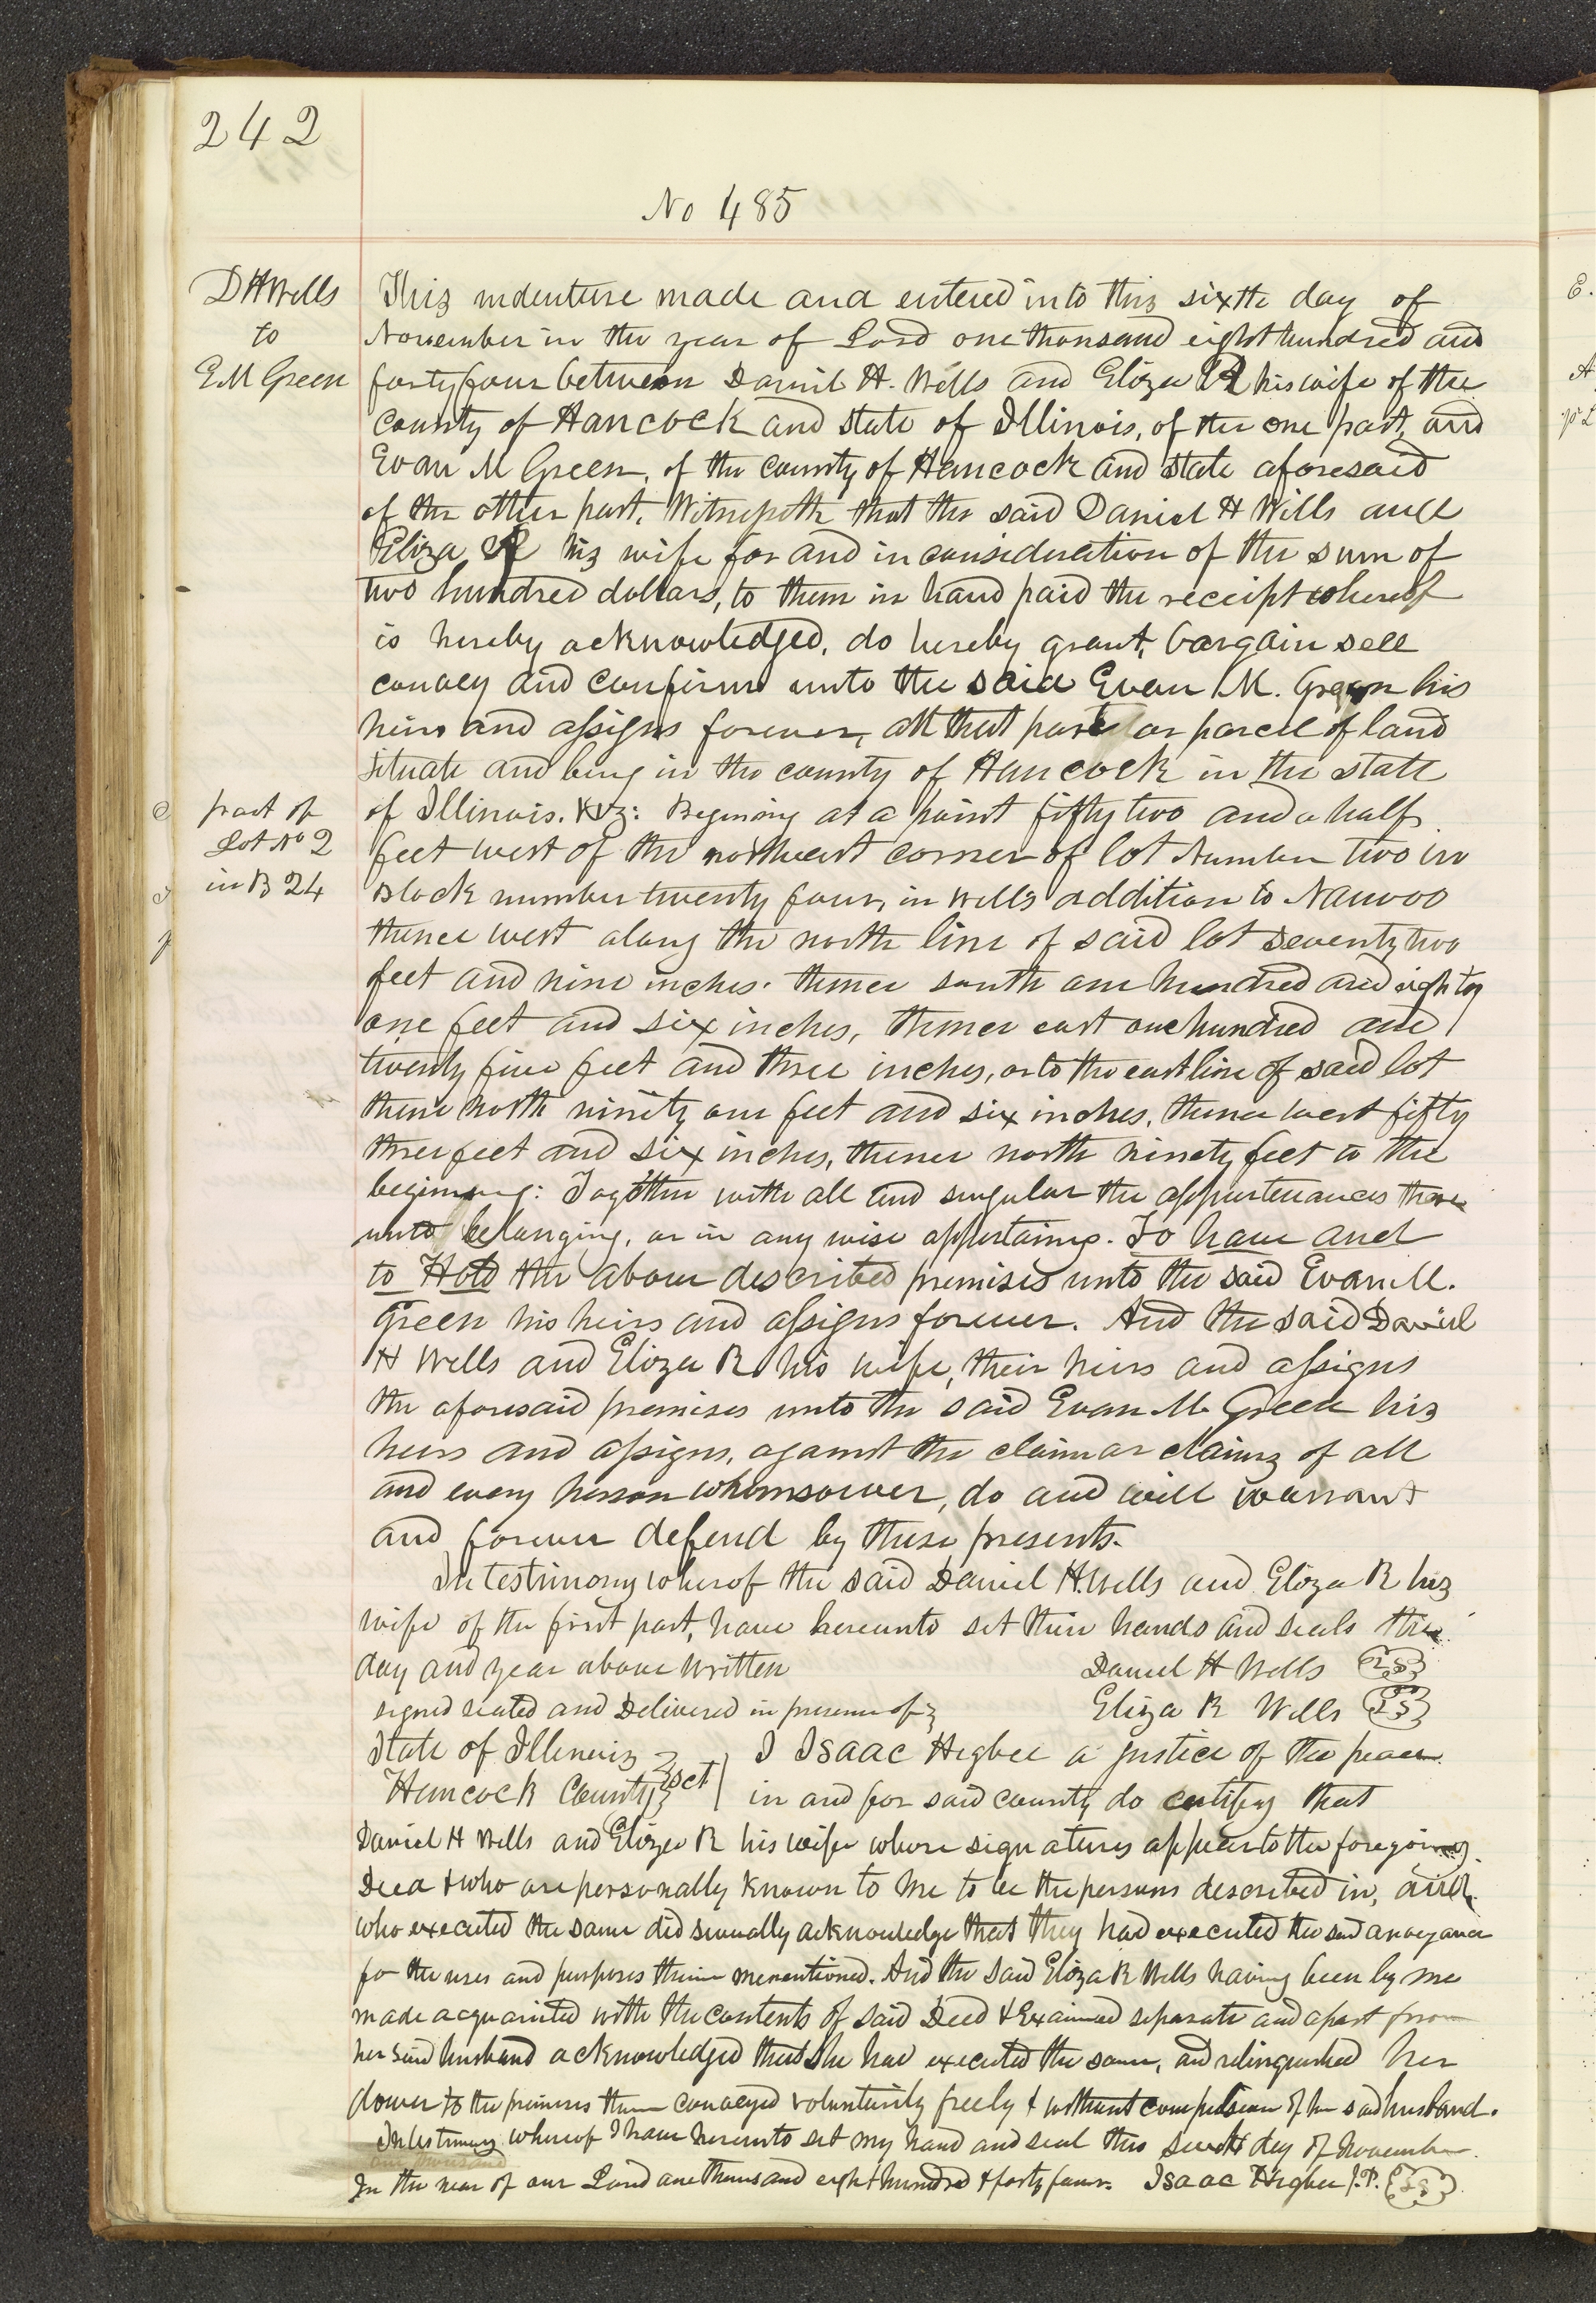 242
No 485
D H Wells
to
E. M Green
This indenture made and entered into this sixth day of
November in the year of Lord one thousand eight hundred and
forty four between Daniel H. Wells and Eliza R his wife of the
county of Hancock and state of Illinois, of the one part, and
Evan M Green, of the county of Hancock and state aforesaid
of the other part, Witnesseth that the said Daniel H Wells and
Eliza R his wife for and in consideration of the sum of
two hundred dollars, to them in hand paid the receipt whereof
is hereby acknowledged, do hereby grant, bargain sell
convey and confirm unto the said Evan M. Green his
heirs and assigns forever, all that part or parcel of land
situate and being in the county of Hancock in the state
part of
Lot No 2
in B 24
of Illinois. viz: Begining at a point fifty two and a half
feet west of the northeast corner of lot Number two in
Block number twenty four, in Wells addition to Nauvoo
thence west along the north line of said lot seventy two
feet and nine inches. thence south one hundred and eighty
one feet and six inches, thence east one hundred and
twenty five feet and three inches, or to the east line of said lot
thence north ninety one feet and six inches, thence west fifty
three feet and six inches, thence north ninety feet to the
begining: Together with all and singular the appurtenances there
unto belonging, or in any wise appertaining. To have and
to Hold the above described premises unto the said Evan M.
Green his heirs and assigns forever. And the said Daniel
H Wells and Eliza R his wife, their heirs and assigns
the aforesaid premises unto the said Evan M. Green his
heirs and assigns, against the claim or claims of all
and every person whomsoever, do and will warrant
and forever defend by these presents.
In testimony wherof the said Daniel H. Wells and Eliza R his
wife of the first part, have hereunto set their hands and seals the
day and year above written Daniel H Wells LS
signed sealed and Delivered in presence of Eliza R Wells LS
State of Illinois } sct I Isaac Higbee a justice of the peace
Hancock County in and for said county do certify that
Daniel H Wells and Eliza R his wife whose signatures appear to the foregoing
Deed & who are personally known to me to be the persons described in, and
who executed the same did severally acknowledge that they had executed the said conveyance
for the uses and purposes therein mentioned. And the said Eliza R Wells having been by me
made acquainted with the contents of said Deed & Examined separate and apart from
her said husband acknowledged that she had executed the same, and relinquished her
dower to the premises therein conveyed voluntarily freely & without compulsion of her said husband.
In testimony whereof I have hereunto set my hand and seal this day of November
In the year of our Lord one thousand eight hundred & forty four. Isaac Higbee J.P. LS